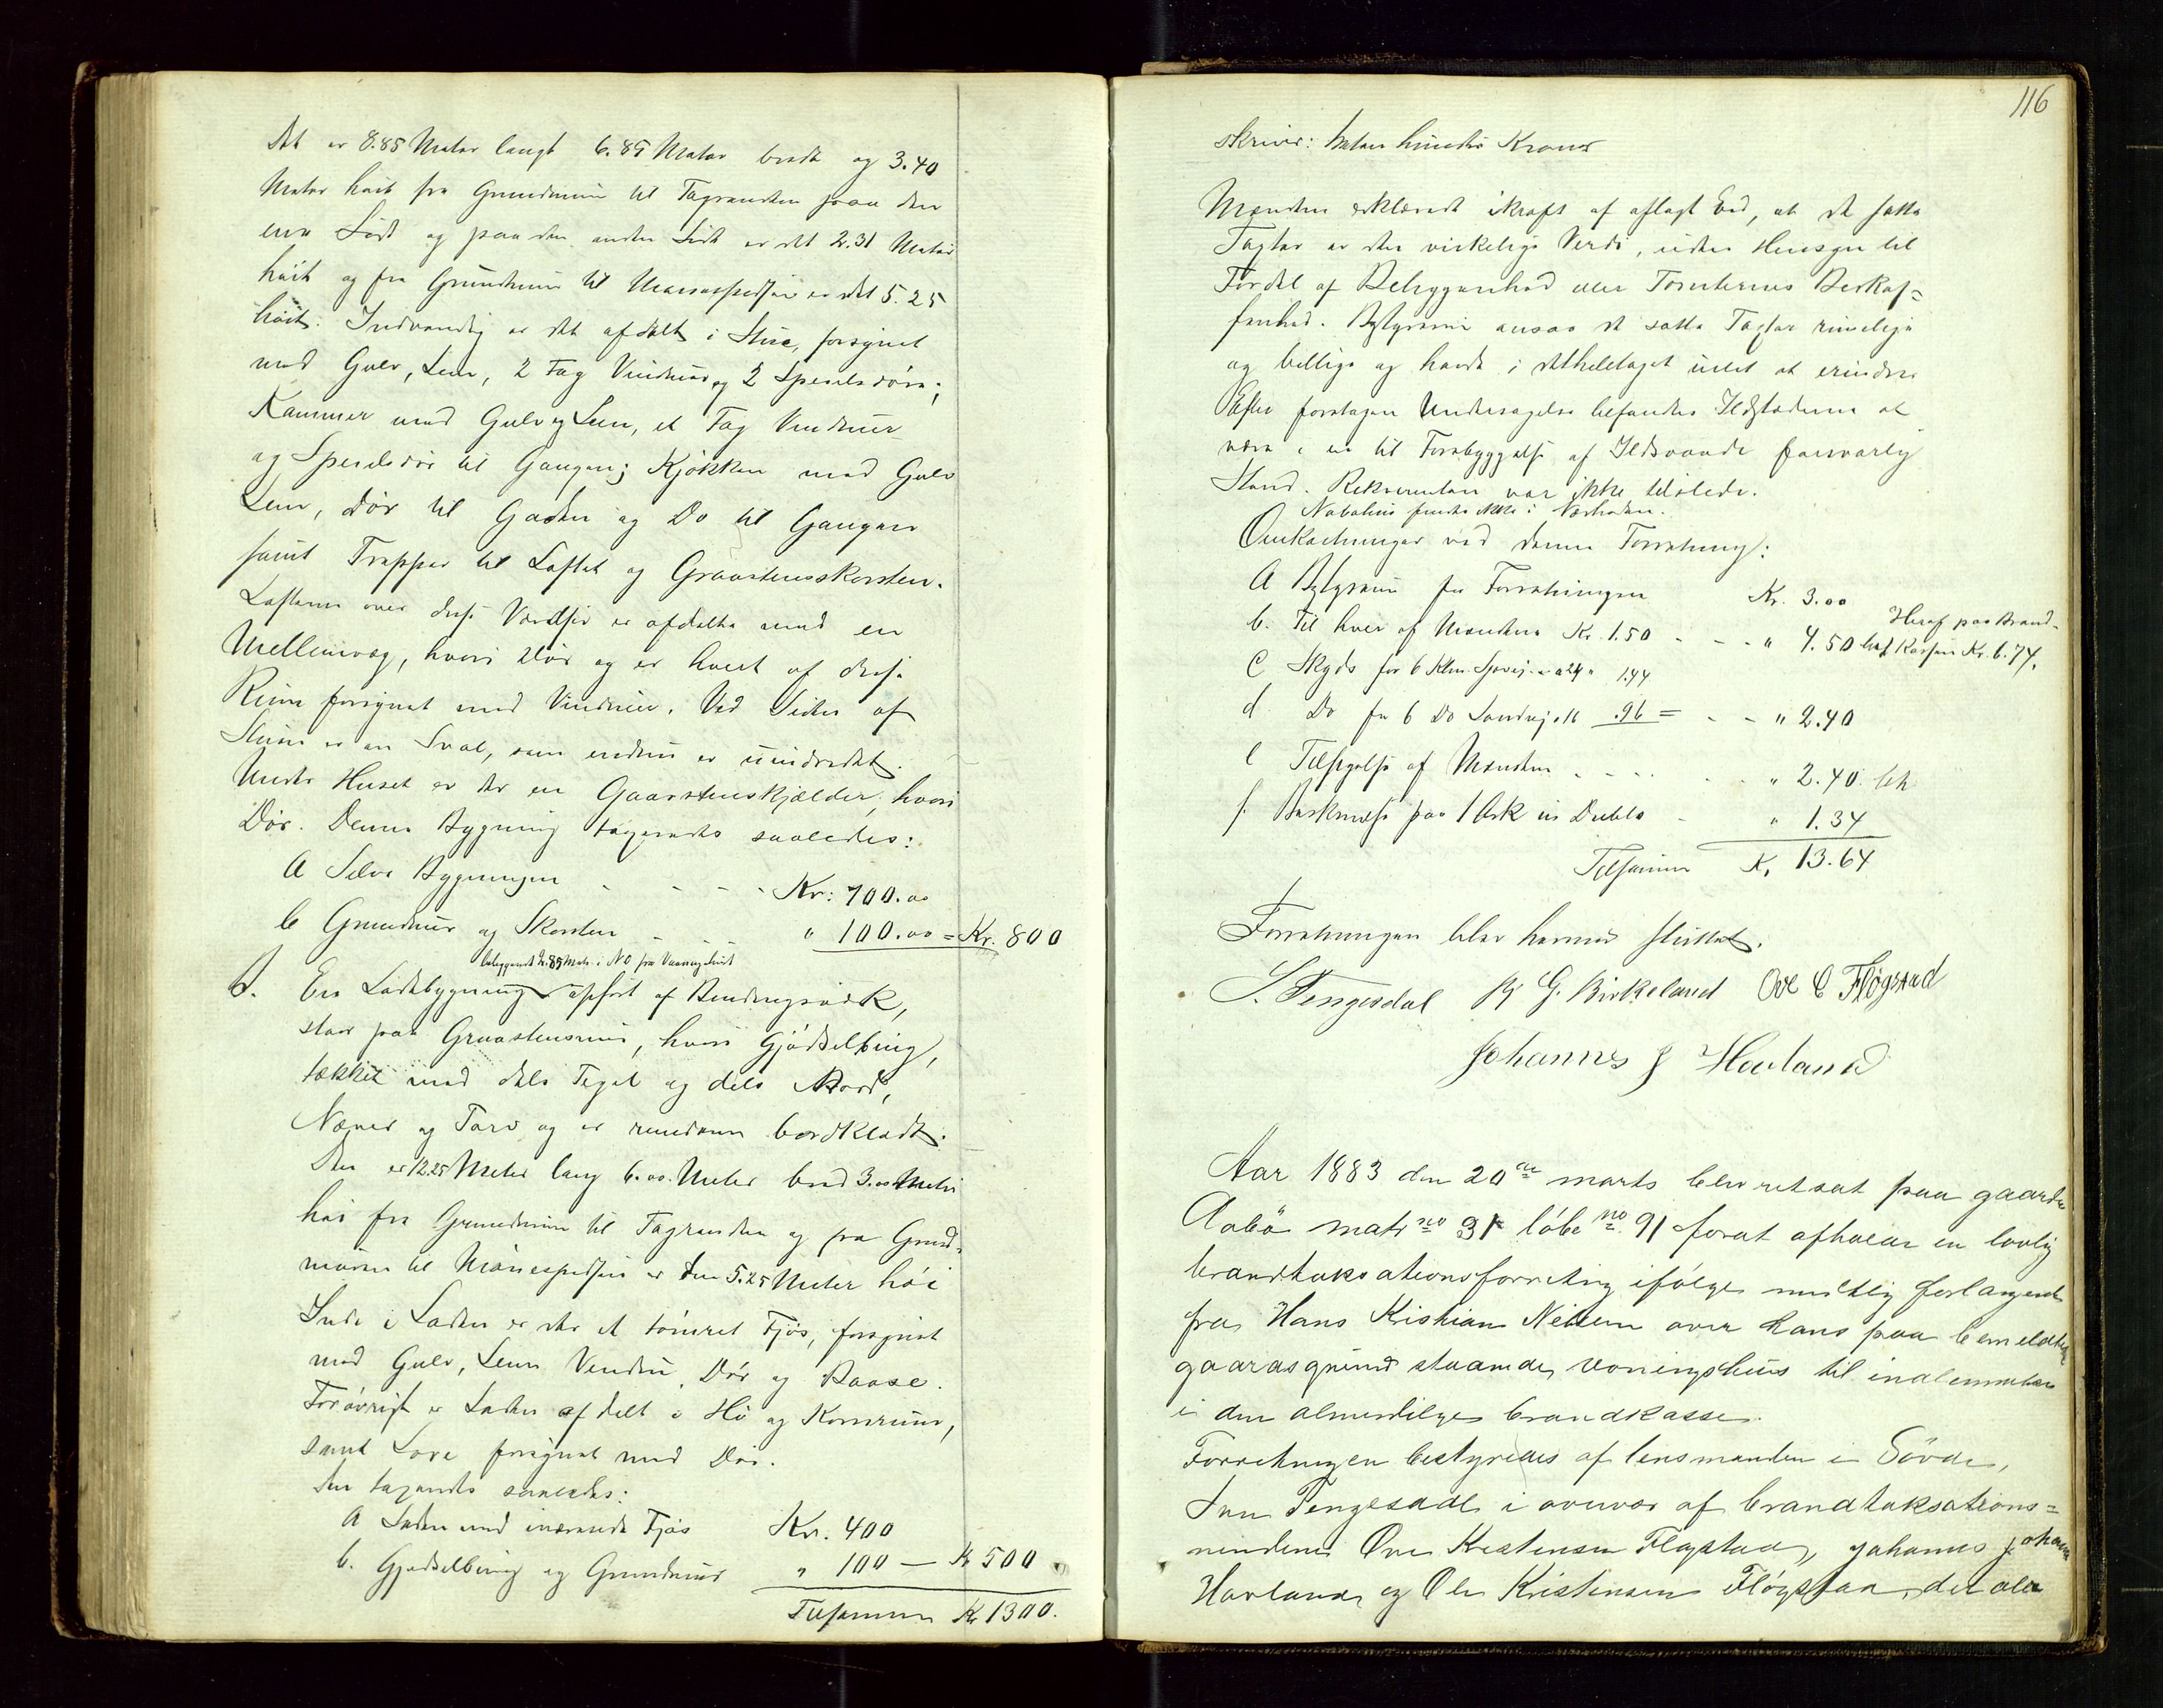 Det er 8.85 Meter langt 6.85 Meter bredt og 3.40
Meter høit fra Grundmuren til Tagranden paa den
ene Side og paa den anden Side er det 2.31 Meter
høit og fra Grundmuren til Mønespidsen er det 5.25
høit. Indvendig er det afdelt i Stue, forsynet
med Gulv, Lem, 2 Fag Vinduer og 2 Speildøre;
Kammer med Gulv og Lem, et Fag Vinduer
og Speildør til Gangen; Kjøkken med Gulv
Lem, Dør til Gaden og Do til Gangen
samt Trapper til Loftet og Graastensskorsten.
Lofterne over disse Værelser er afdelte med en
Mellemvæg, hvori Dør og er hvert af disse
Rum forsynet med Vinduer. Ved Siden af
Stuen er en Sval, som endnu er uindredet.
Under Huset er der en Gaarstenskjælder, hvori
Dør. Denne Bygning taxeredes saaledes:
A Selve Bygningen - - - - Kr: 700.00
b Grundmur og Skorsten - " 100.00 = Kr. 800
beliggende 2.85 Meter i NO fra Vaaningshuset
B. En Ladebygning opført af Bindingsværk,
staar paa Graastensmur, hvori Gjødselbing,
tækket med dels Tegel og dels Bord,
Næver og Torv og er rundtom bordklædt.
Den er 12.25 Meter lang 6.00 Meter bred 3.00 Meter
høi fra Grundmuren til Tagranden og fra Grund-
muren til Mønespidsen er den 5.25 Meter høi
Inde i Laden er der et tømret Fjøs, forsynet
med Gulv, Lem Vindu, Dør og Baase.
Forøvrigt er Laden afdelt i Hø og Kornrum,
samt Love forsynet med Dør.
Den taxeredes saaledes:
A Laden med iværende Fjøs Kr. 400
b. Gjødselbing og Grundmur " 100 — Kr 500
Tilsammen Kr 1300.
116
skriver: tretten hundre Kroner
Mændene erklærede ikraft af aflagt Ed, at de satte
Taxter er den virkelige Verdi, uden Hensyn til
Fordel af Beliggenhed eller Tomternes Beskaf=
fenhed. Bestyreren ansaa de satte Taxter rimelige
og billige og havde i detheletaget intet at erindre
Efter foretagen Undersøgelse befandtes Ildstederne at
være i en til Forebyggelse af Ildsvaade forsvarlig
Stand. Rekvirenten var ikke tilstede.
Nabohuse findes ikke i Nærheden.
Omkostninger ved denne Forretning:
A Bestyreren for Forretningen Kr. 3.00
b. Til hver af Mændene Kr. 1.50 - - - " 4.50 Heraf paa Brand-
Kassen Kr. 6.74.
C Skyds for 6 Klm. Sjøvej - a 24 " 1.44
d Do for 6 Do Landvej a 16 .96 = - - " 2.40
e Tilsigelse af Mændene - - - - " 2.40
f. Beskrivelse paa 1 Ark in Dublo - " 1.34
Tilsammen Kr 13.64
Forretningen blev hermed sluttet.
S. Tengesdal Bj G. Birkeland Ove C Fløgstad
Johannes J Hovland
Aar 1883 den 20de marts blev retsat paa gaarden
Aabø matr no 31 løbe no 91 forat afholde en lovlig
brandtaksationsforretning ifølge mundtlig forlangende
fra Hans Kristian Nielsen over hans paa bemeldte
gaardsgrund staaende Voningshus til indlemmelse
i den almindelige brandkasse.
Forretningen bestyredes af lensmanden i Søvde,
Sven Tengesdal i overvær af brandtaksations=
mændene Ove Kristensen Fløgstad, Johannes Johannes
Havland, og Ole Kristensen Fløgstad, der alle